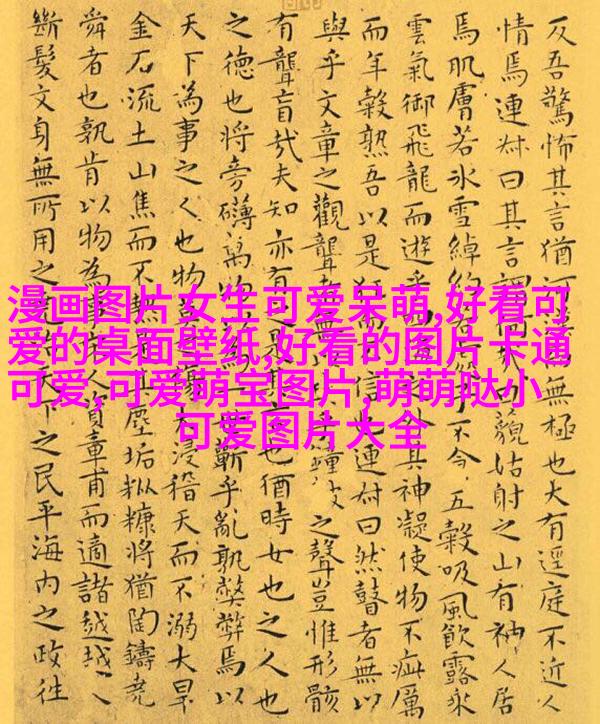 反吾驚怖其言猶河無極也大有逕庭不近人
情焉連叔曰其言謂何曰藐姑射之山有神人居
焉肌膚若冰雪綽約不食五穀吸風飲露乘
雲氣御飛龍而遊乎外其神凝使物不疵厲
而年穀熟吾以是狂而信也連叔曰然瞽者無以
與乎文章之觀聾乎鐘鼓之聲豈惟形骸
有聾盲哉夫知亦有之是其也猶時女也之人也
之德也將旁礴萬物蘄乎亂孰弊弊焉以
天下為事之人也物莫傷大浸稽天而不溺大旱
金石流土山焦而不熱其塵垢粃糠將猶陶鑄堯
舜者也孰肯以物為事人資章甫而適諸越越人
斷髮文身無所用之天下之民平海內之政往
漫画图片女生可爱呆萌,好看可
爱的桌面壁纸,好看的图片卡通
可爱,可爱萌宝图片,萌萌哒小
可爱图片大全